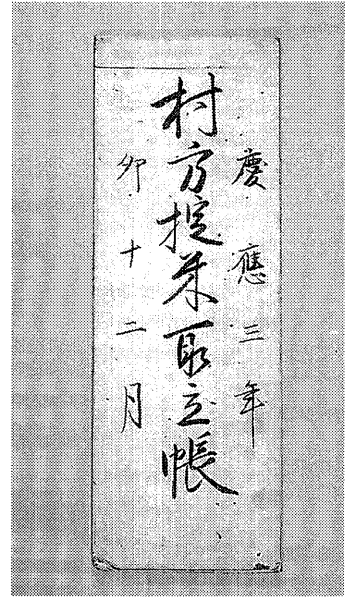 慶應三年
村方掟米取立帳
卯十二月